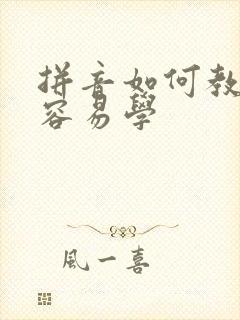 拼音如何教
容易學
風一喜